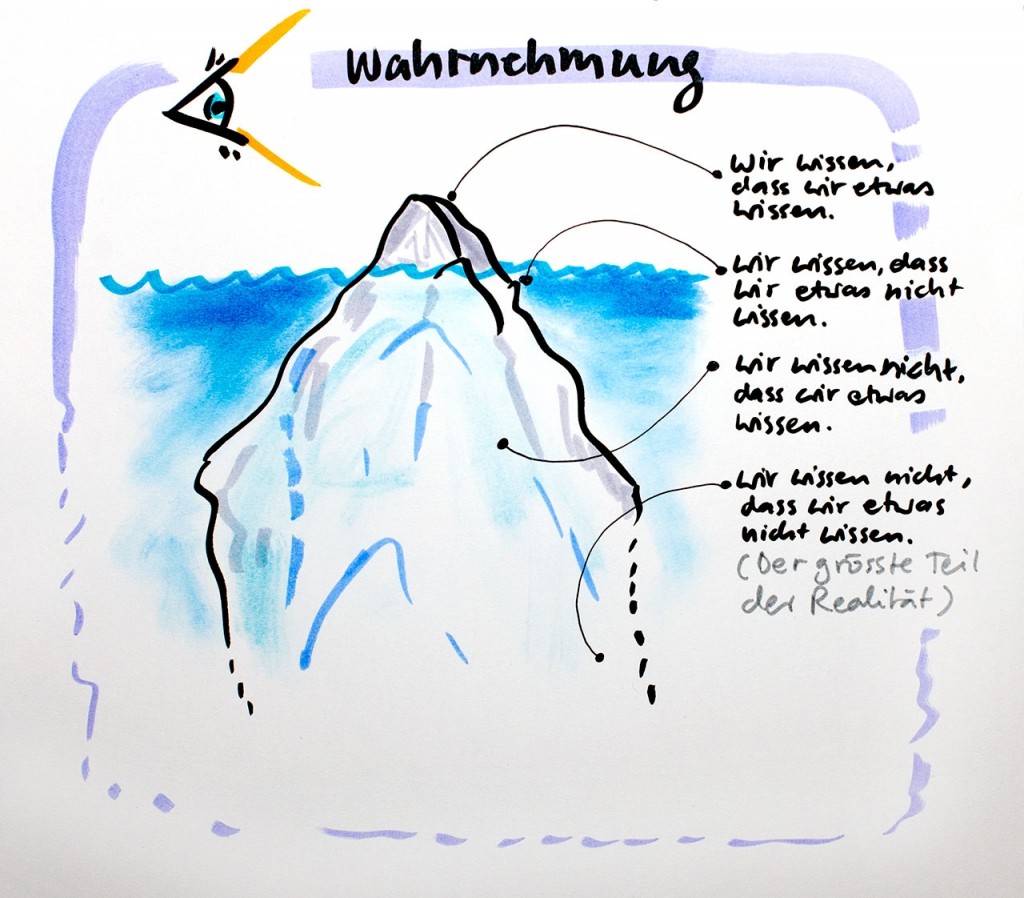 Wahrnehmung
Wir wissen,
dass wir etwas
wissen.
Wir wissen, dass
wir etwas nicht
wissen.
Wir wissen nicht,
dass wir etwas
wissen.
Wir wissen nicht,
dass wir etwas
nicht wissen.
(Der grösste Teil
der Realität)